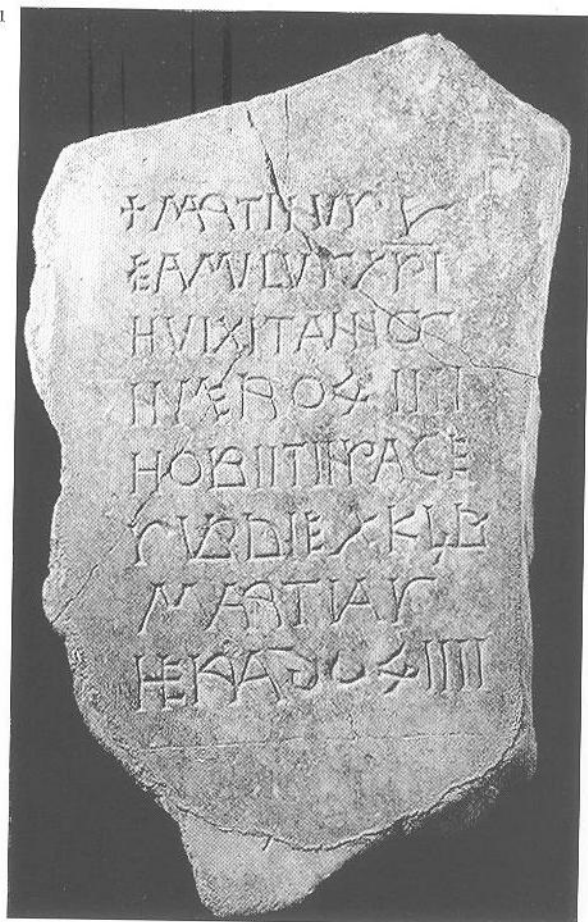 1
+ MARTINVS V
FAMVLVS XPI
HVIXIT ANNOS
NVMERO XIIII
HOBIIT IN PACE
SVB DIE X KLB
MARTIAS
HERA DCXIIII